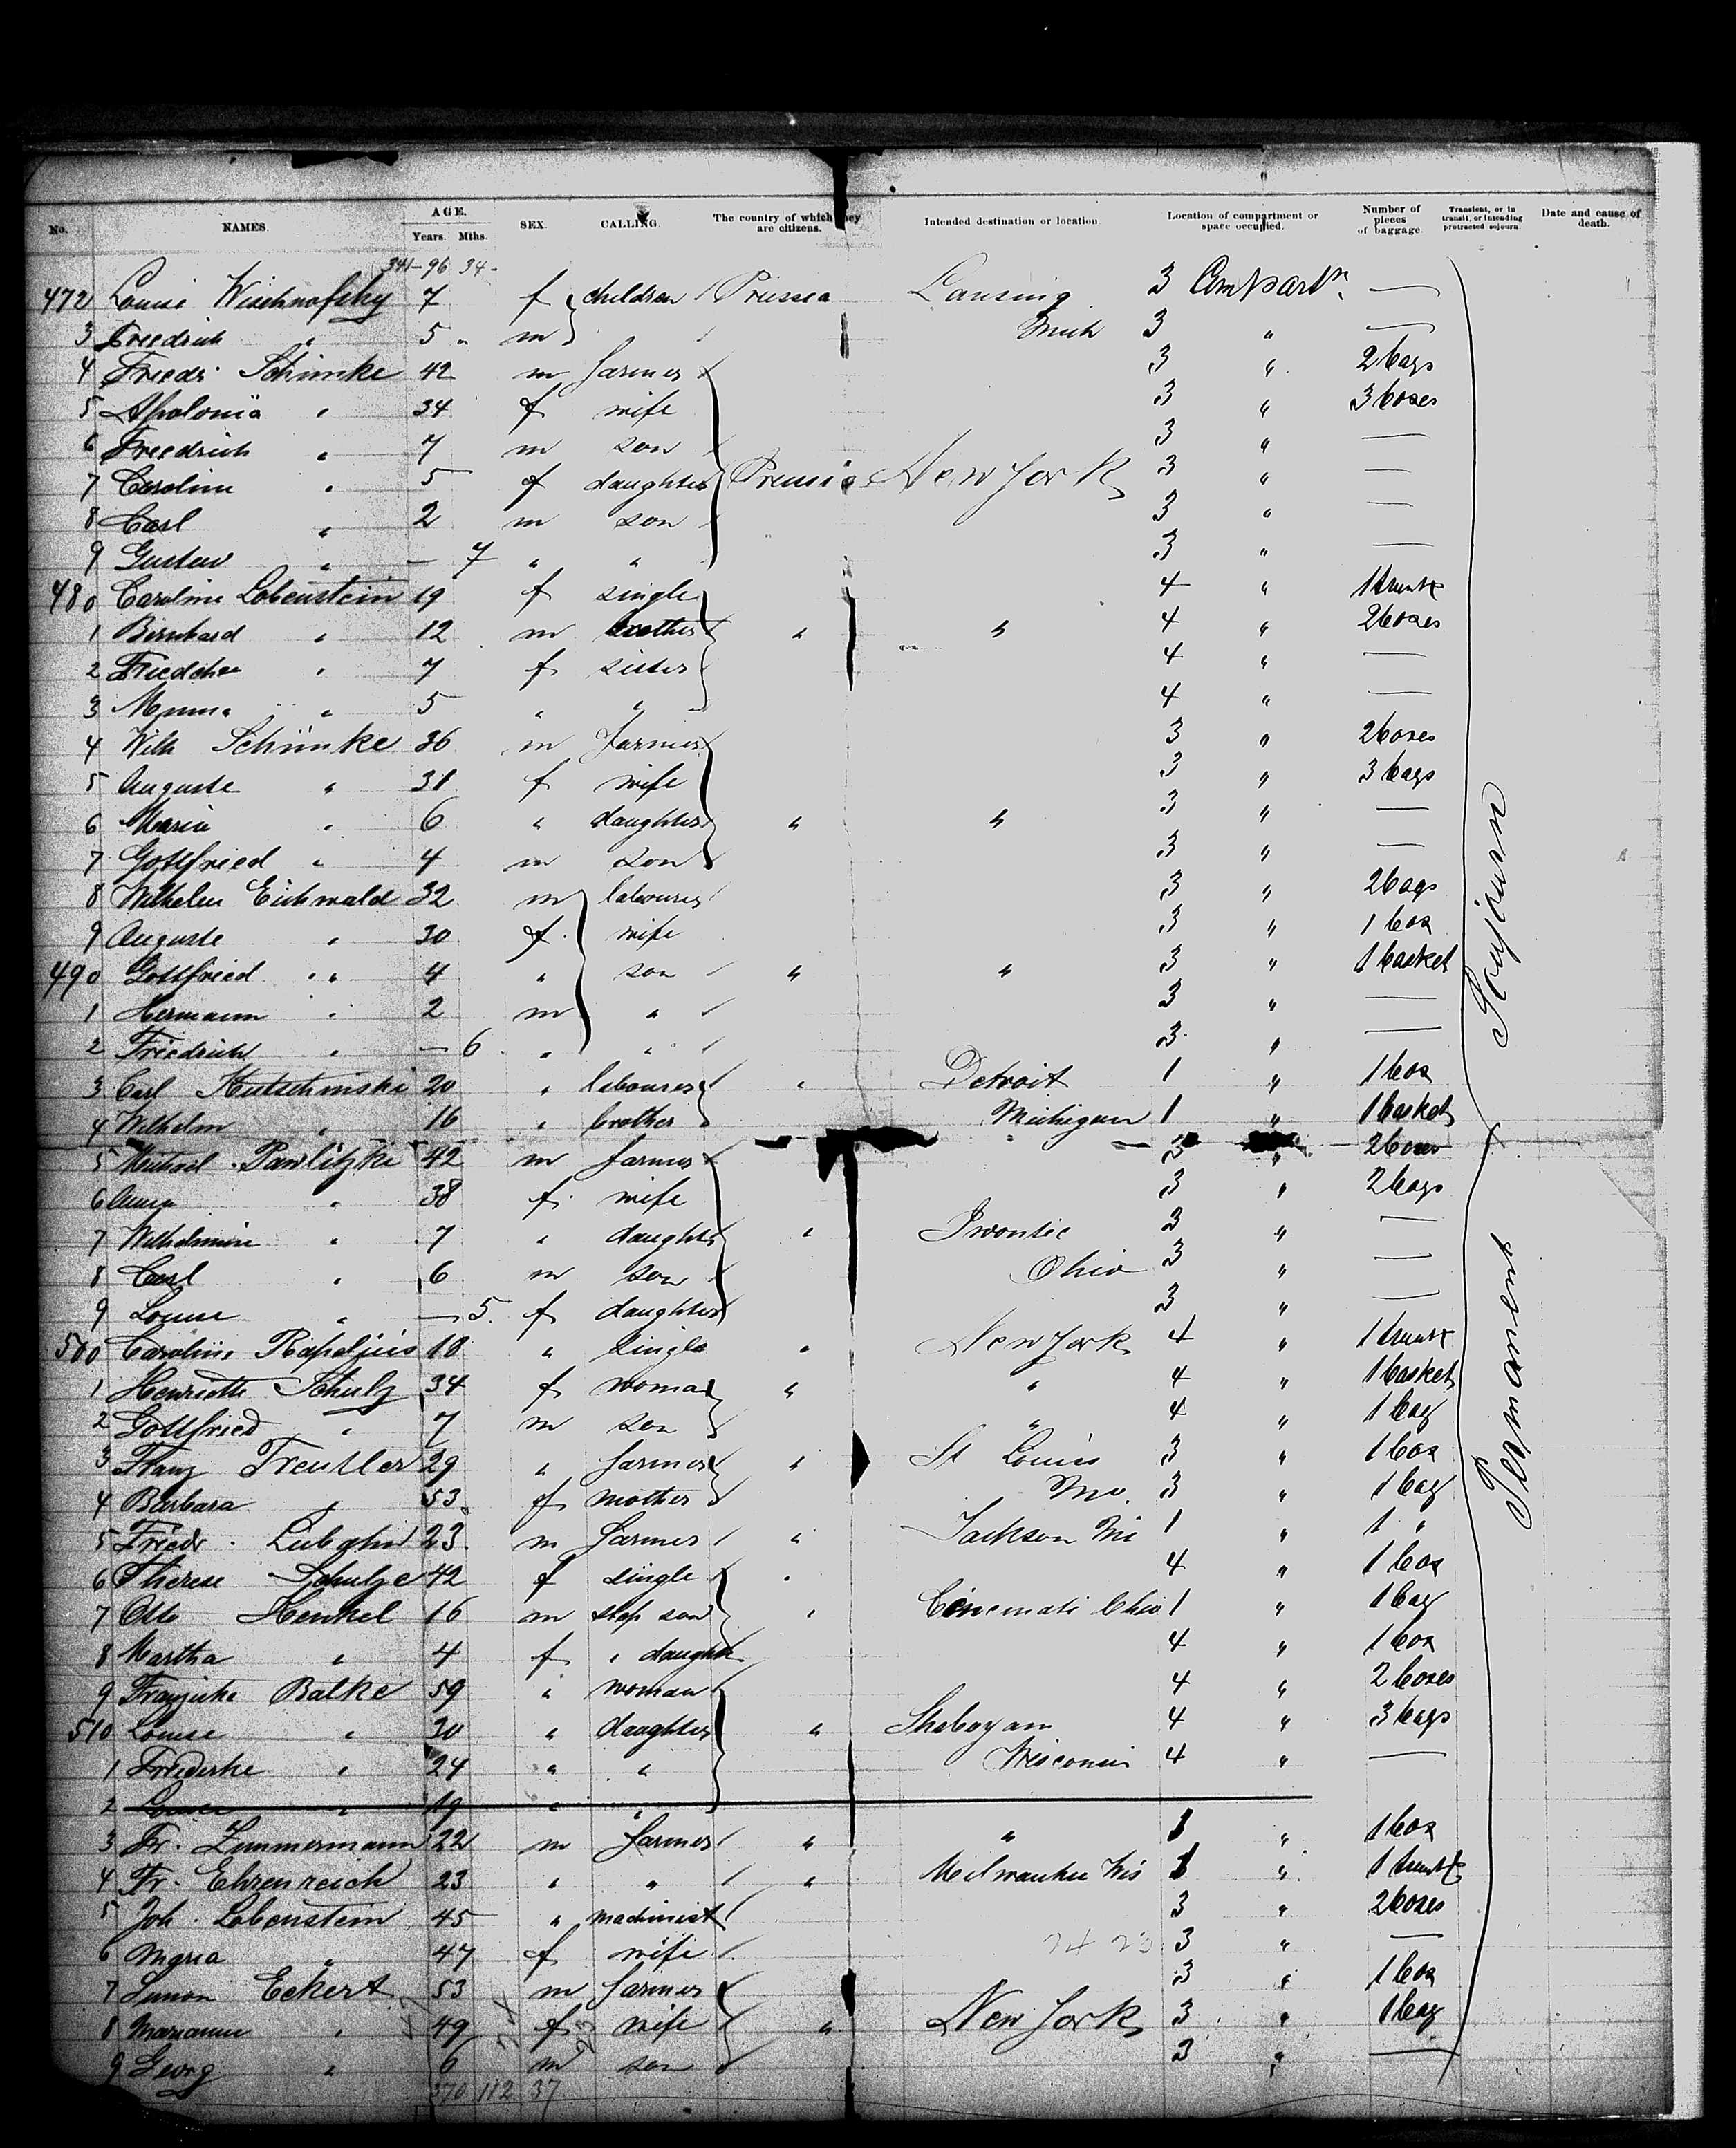 No. NAMES. AGE. Years. Mths. SEX. CALLING. The country of which they are citizens. Intended destination or location. Location of compartment or space occupied. Number of pieces of baggage. Transient, or in transit, or intending protracted sojourn. Date and cause of death.
341-96 34-
472 Louise Wischnofsky 7 f children Prussia Lansing 3 Compartm. —
3 Friedrich " 5 " m " Mich 3 " —
4 Friedr. Schimke 42 m farmer 3 " 2 bags
5 Apolonia " 34 f wife 3 " 3 boxes
6 Friedrich " 7 m son 3 " —
7 Caroline " 5 f daughter Prussia New York 3 " —
8 Carl " 2 m son 3 " —
9 Gustav " — 7 " " 3 " —
480 Caroline Lobenstein 19 f single 4 " 1 trunk
1 Bernhard " 12 m brother " " 4 " 2 boxes
2 " 7 f sister 4 " —
3 " 5 " " 4 " —
4 Wilh Schimke 36 m farmer 3 " 2 boxes
5 Auguste " 31 f wife 3 " 3 bags
6 Maria " 6 " daughter " " 3 " —
7 Gottfried " 4 m son 3 " —
8 Wilhelm Eichwald 32 m labourer 3 " 2 bags
9 Auguste " 30 f wife 3 " 1 box
490 Gottfried " 4 " son " " 3 " 1 basket
1 Hermann " 2 m " 3 " —
2 Friedrich " — 6 " " 3 " —
3 Carl Kutschinski 20 " labourer " Detroit 1 " 1 box
4 Wilhelm " 16 " brother Michigan 1 " 1 basket
5 Michael Pawlitzki 42 m farmer 3 " 2 boxes
6 Anna " 38 f wife 3 " 2 bags
7 Wilhelmine " 7 " daughter " 3 " —
8 Carl " 6 m son Ohio 3 " —
9 Louise " — 5 f daughter 3 " —
500 Caroline 18 " single " New York 4 " 1 trunk
1 Henriette Schulz 34 f woman " " 4 " 1 basket
2 Gottfried " 7 m son " 4 " 1 bag
3 Franz Treutler 29 " farmer " St Louis 3 " 1 box
4 Barbara " 53 f mother Mo. 3 " 1 bag
5 Friedr. 23 m farmer " Jackson 1 " 1 "
6 Therese Schulze 42 f single " 4 " 1 box
7 Otto Henkel 16 m step son " Cincinati Ohio 1 " 1 bag
8 Martha " 4 f " daughter 4 " 1 box
9 Franziska Balke 59 " woman 4 " 2 boxes
510 Louise " 30 " daughter " Shebogan 4 " 3 bags
1 Friederike " 24 " " Wisconsin 4 " —
2 Louise " 19 " "
3 Fr. Zimmermann 22 m farmer " " 1 " 1 box
4 Fr. Ehrenreich 23 " " " Milwaukee Wis 1 " 1 trunk
5 Joh. Lobenstein 45 " machinist 3 " 2 boxes
6 Maria " 47 f wife 24 23 3 " —
7 Simon Eckert 53 m farmer 3 " 1 box
8 Marianne " 49 f wife " New York 3 " 1 bag
9 Georg " 6 m son 3 " —
370 112 37
Soujourn
Permanent